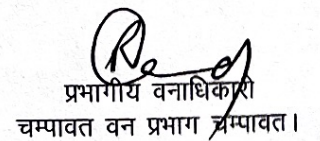 प्रभागीय वनाधिकारी
चम्पावत वन प्रभाग चम्पावत।